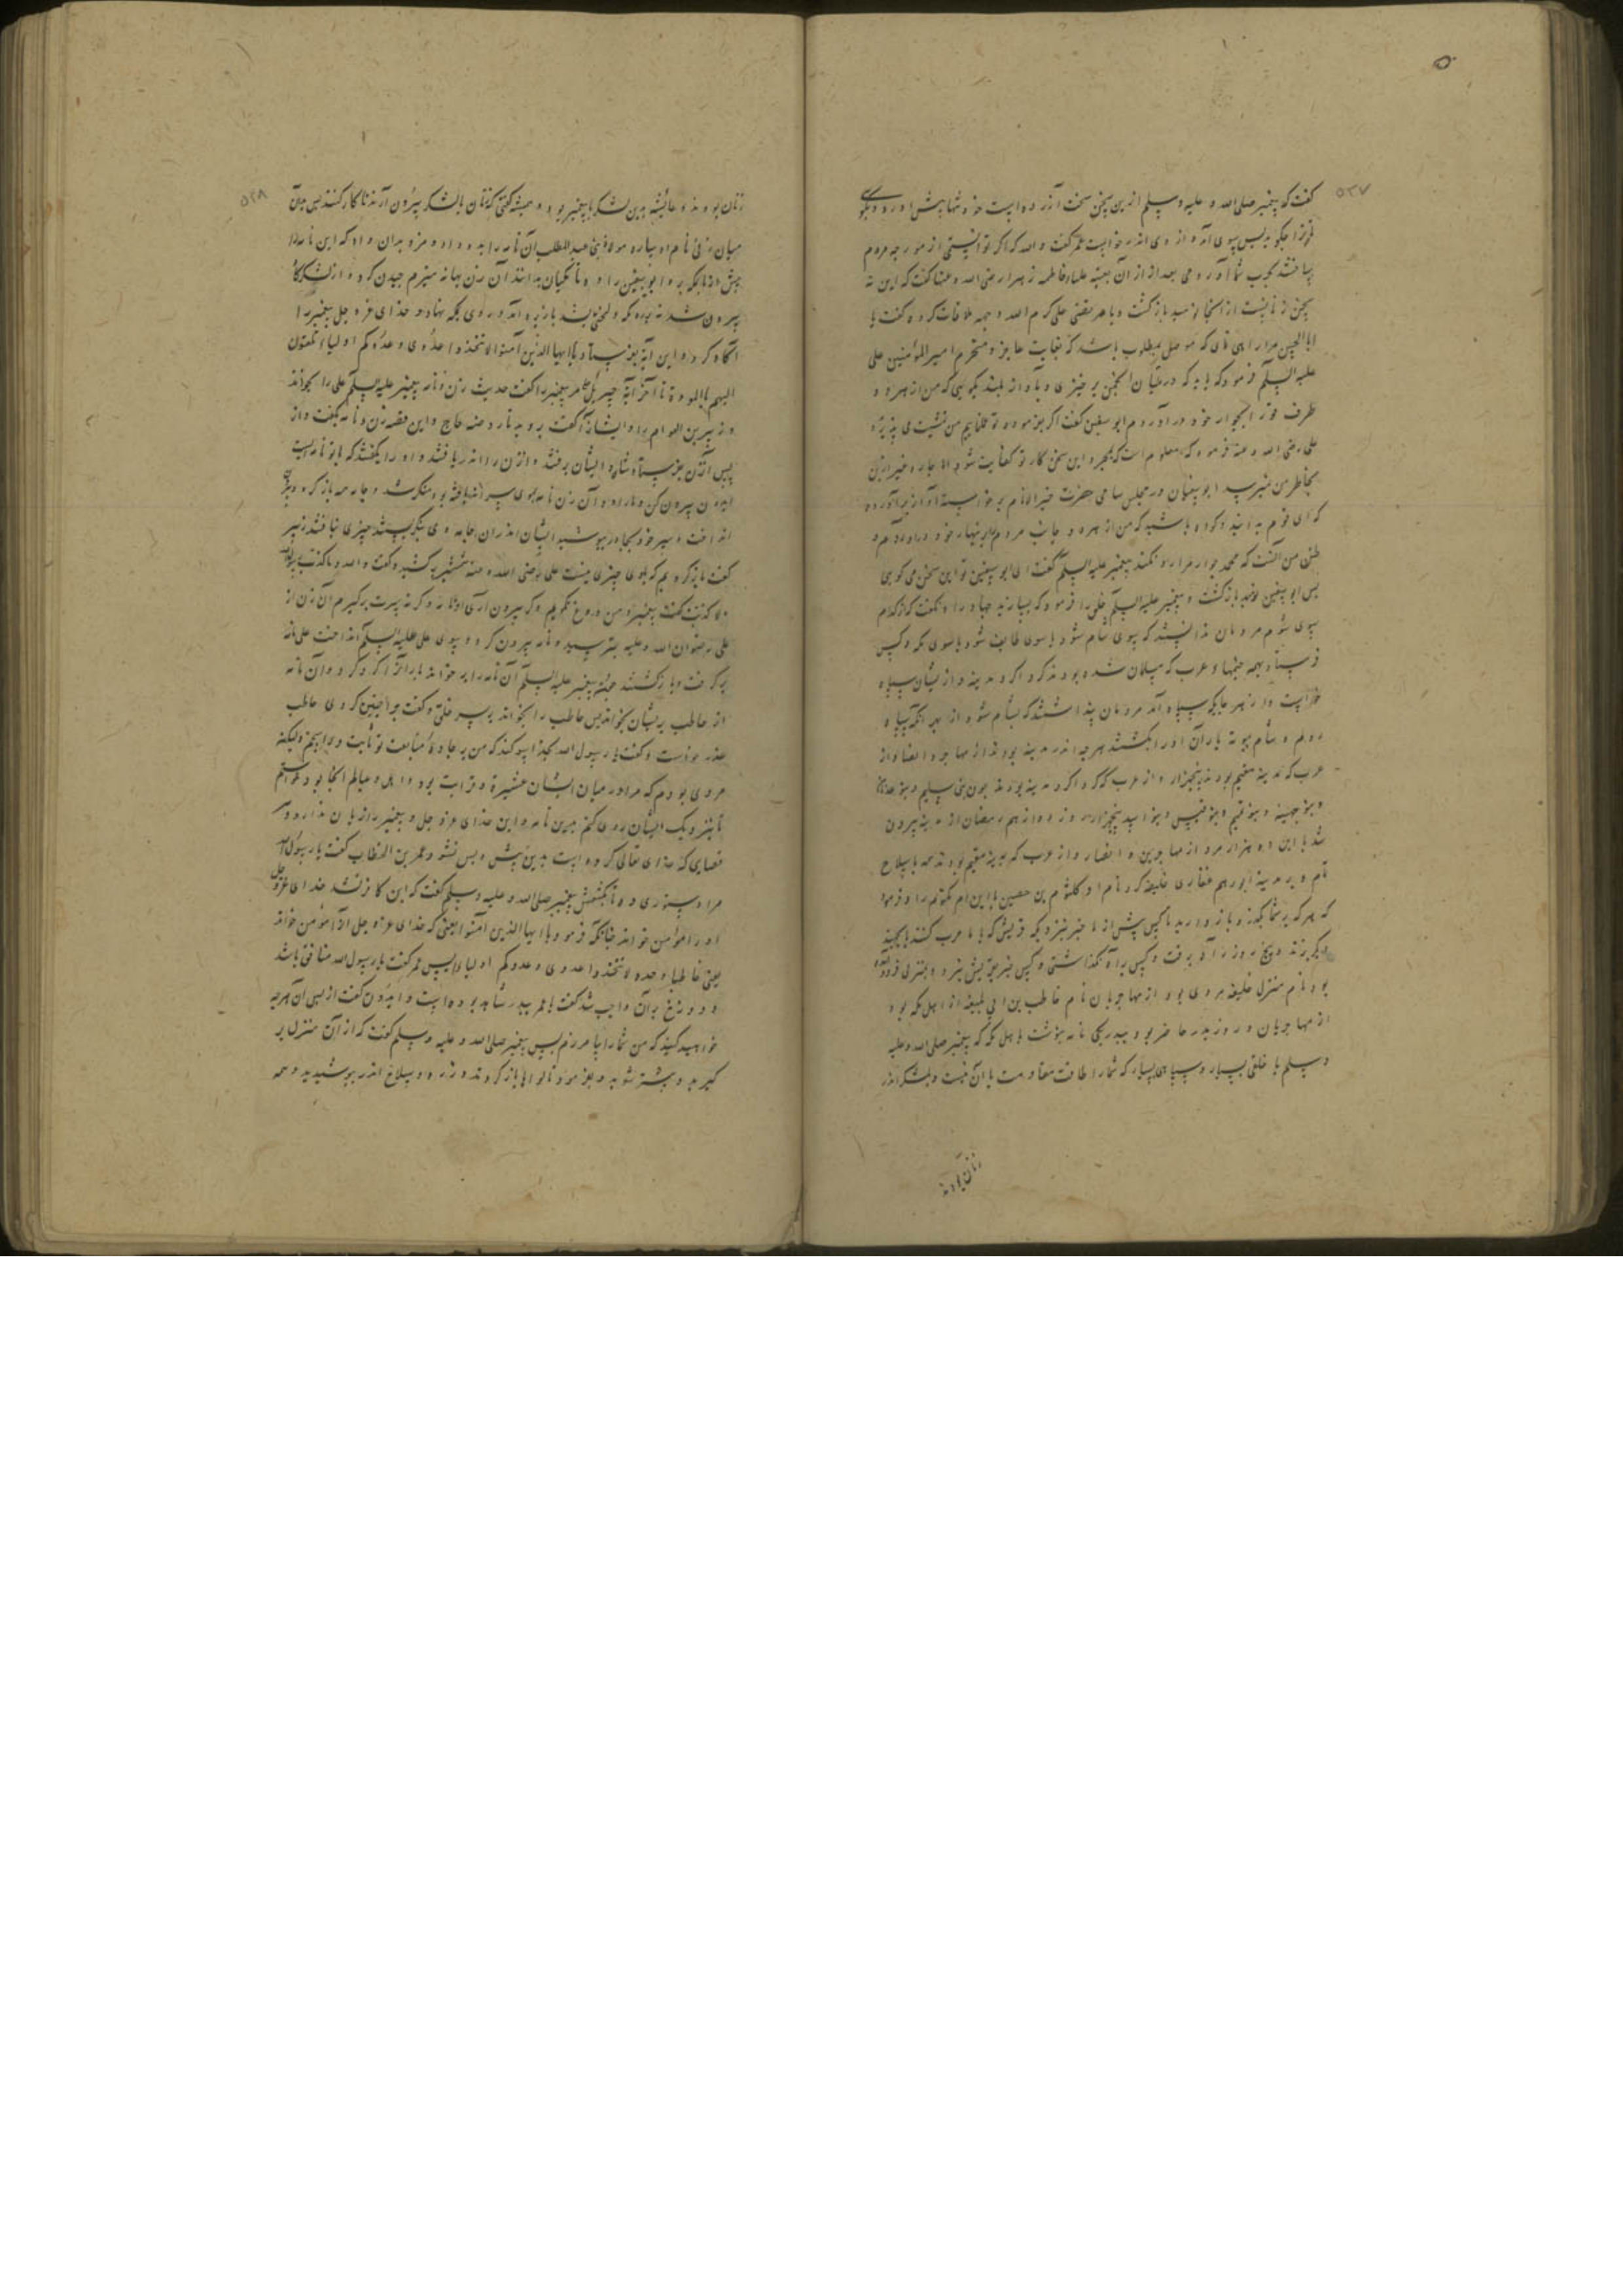 ۵۲۷
گفت که پیغمبر صلی الله و علیه وسلم ازین سخن سخت آزرده است
پس بوی آمد و از وی اندر خواست عمر گفت والله که اگر توانستی از مورچه مردم
بعد از آن بعنبه علیا فاطمه زهرا رضی الله وعنها گفت که این نه
سخن زنانست از آنجا نومید بازگشت و با مرتضی علی کرم الله وجهه ملاقات کرد و گفت یا
ابا الحسن مرا راهی نمای که موصل بمطلوب باشد که بغایت عاجز و متحیرم امیر المؤمنین علی
علیه السلم فرمود که باید که در میان انجمن برخیزی و بآواز بلند بگویی که من از بهر دو
طرف خود در آوردم ابو سفین گفت اگر
علی رضی الله وعنه فرمود که معلوم است که بمجرد این سخن کار تو کفایت شود اما چاره غیر ازین
بخاطر من نمیرسد ابو سفیان در مجلس سامی حضرت خیر الانام برخواسته آواز برآورد
که ای قوم بدانید و گواه باشید که من از بهر دو جانب مردم را بزینهار خود درآوردم و
ظن من آنست که محمد جوار مرا رد نکند پیغمبر علیه السلم گفت ای ابو سفین تو این سخن می گویی
پس ابو سفین نومید بازگشت و پیغمبر علیه السلم علی را فرمود که بسازید جهاد را و نگفت که از کدام
سوی شوم مردمان ندانستند که بسوی شام شود یا سوی طایف شود یا سوی مکه و کس
فرستاد بهمه و عرب که مسلمان شده بودند گرد اگرد مدینه و از یشان سپاه
خواست و از بهر جایکی سپاه آمد مردمان پنداشتند که بشام شود از بهر آنکه سپاه
روم و شام یاران او را بکشتند هر چه اندر مدینه بودند از مهاجر و انصار و از
عرب که مدینه مقیم بودند پنجهزار و از عرب که گرد اگرد مدینه بودند چون بنی سلیم و بنو
و بنو جهینه و بنو تمیم و بنو قیس و بنو اسد پنجهزار و روز دوازدهم رمضان از مدینه بیرون
شد با این ده هزار مرد از مهاجرین و انصار و از عرب که بمدینه مقیم بودند همه با سلاح
تام و بر مدینه ابورهم غفاری خلیفه کرد نام او کلثوم بن حصین با ابن ام مکتوم را و فرمود
که هر که بر شما بگذرد باز دارید تا کس پیش از ما خبر نبرد بمکه قریش که با ما حرب کنند یا بجهند
بگریزند و پنج روز راه برفت و کس براه نگذاشتی و کس خبر پیش نبرد و بمنزلی فرود آمده
بود نام منزل خلیفه مردی بود از مهاجریان نام حاطب بن ابی بلیغه از اهل مکه بود
از مهاجریان و روز بدر حاضر بود و بیدر یکی نامه بنوشت باهل مکه که پیغمبر صلی الله وعلیه
وسلم با خلقی بسیار و سپاهی بسیار که شما را طاقت مقاومت با آن نیست و بلشکر اندر
زنان بودند
۵۲۸
زنان بودند و عایشه بدین لشکر با پیغمبر بود و همیشه گفتی که زنان با لشکر بیرون آرند تا کار کنند پس
میان زنی نام او ساره مولاة بنی عبد المطلب آن نامه را بدو داد و مزد بدان داد که این نامه را
پیش از ما بمکه برد و ابو سفین را دهد تا مکیان بدانند آن زن بهانه هیزم چیدن کرد و از لشکرگاه
بیرون شد و براه مکه بازبره آمد و روی بمکه نهاد و خدای عز و جل پیغمبر را
آگاه کرد و این آیه بفرستاد یا ایها الذین آمنوا لا تتخذوا عدوی و عدوکم اولیاء تلقون
الیهم بالمودة تا آخر آیة جبرئیل مر پیغمبر را گفت حدیث زن و نامه پیغمبر علیه السلم علی را بخواند
و زبیر بن العوام را و ایشانرا گفت بروید تا روضه خاخ و این قصه زن و نامه بگفت و از
پس آن زن بفرستاد شان و ایشان برفتند و آن زن را اندر یافتند و او را بگفتند که با تو نامه است
بیرون کن و ما را ده و آن زن نامه بموی سر اندر بافته بود منکر شد و جامه همه باز کرد و
انداخت و سر خود بجادر بپوشید ایشان اندر آن جامه وی بنگریستند چیزی نیافتند زبیر
گفت بازگردیم که با وی چیزی نیست علی رضی الله وعنه شمشیر برکشید و گفت والله و ما کذب رسول الله
ولا کذبت گفت پیغمبر و من دروغ نگویم گر بیرون آری او نامه و گر نه سرت برگیرم آن زن از
علی رضوان الله وعلیه بترسید و نامه بیرون کرد و بسوی علی علیه السلم انداخت علی نامه
برگرفت و بازگشتند پیغمبر علیه السلم آن نامه را بر خواند یاران را گرد کرد و آن نامه
از حاطب بریشان بخواند پس حاطب را بخواند بر سر خلق و گفت چرا چنین کردی حاطب
عذر خواست و گفت یا رسول الله بخدا سوگند که من بر جادهٔ متابعت تو ثابت و راسخم ولیکن
مردی بودم که مرا در میان ایشان عشیرة و قرابت بود و اهل و عیالم آنجا بود خواستم
تا بنزدیک ایشان روی کنم بدین نامه و این خدای عز و جل و پیغمبر را زیان ندارد و
قضایی که خدای تعالی کرده است بدین پیش و پس نشود عمر بن الخطاب گفت یا رسول الله
مرا دستوری ده تا بکشمش پیغمبر صلی الله و علیه وسلم گفت که این کافر نشد خدای عز و جل
او را مؤمن خواند چنانکه فرمود یا ایها الذین آمنوا یعنی که خدای عز و جل او را مؤمن خواند
یعنی لا تتخذوا عدوی و عدوکم اولیاء پس عمر گفت یا رسول الله منافق باشد
و دوزخ بر آن واجب شد گفت یا عمر ببدر شاهد بوده است و ایدون گفت از پس آن هر چه
خواهید کنید که من شما را بیامرزم پس پیغمبر صلی الله و علیه وسلم گفت که از آن منزل بر
گیرید و بیشتر شوید و بفرمود تا لواها باز کردند و زره و سلاح اندر بپوشیدند و همه